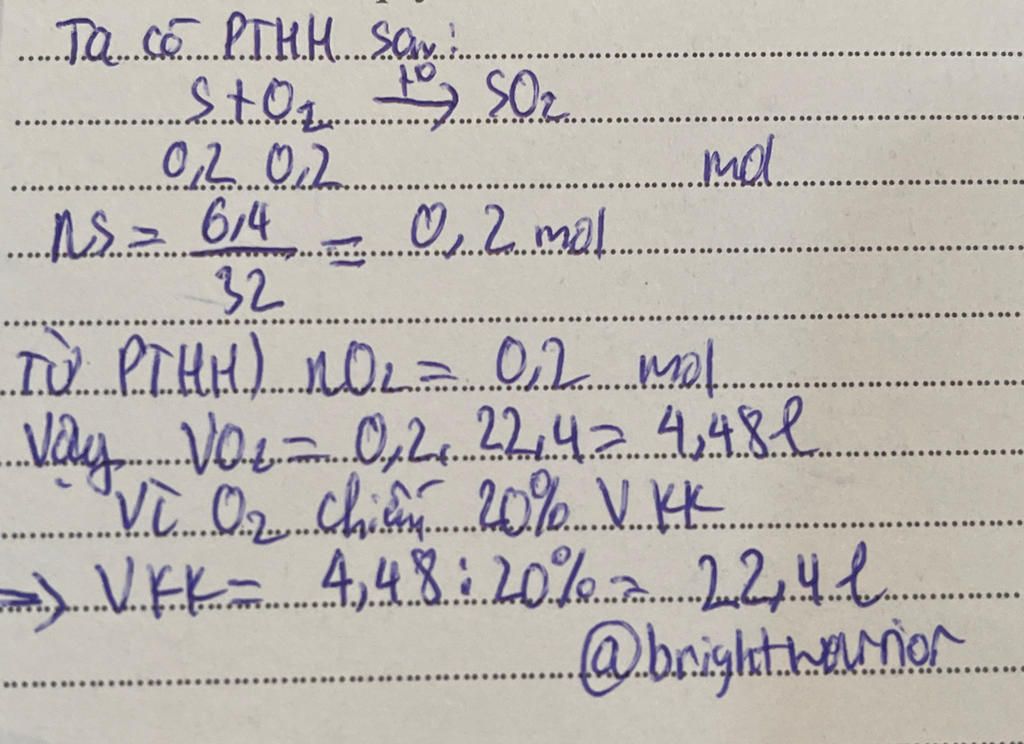 Ta có PTHH sau:
S+O₂ →(t°) SO₂
0,2 0,2 mol
nS = 6,4/32 = 0,2 mol
Từ PTHH) nO₂ = 0,2 mol
Vậy VO₂ = 0,2. 22,4 = 4,48 l
Vì O₂ chiếm 20% VKK
=> VKK = 4,48 : 20% = 22,4 l
@brightwarrior